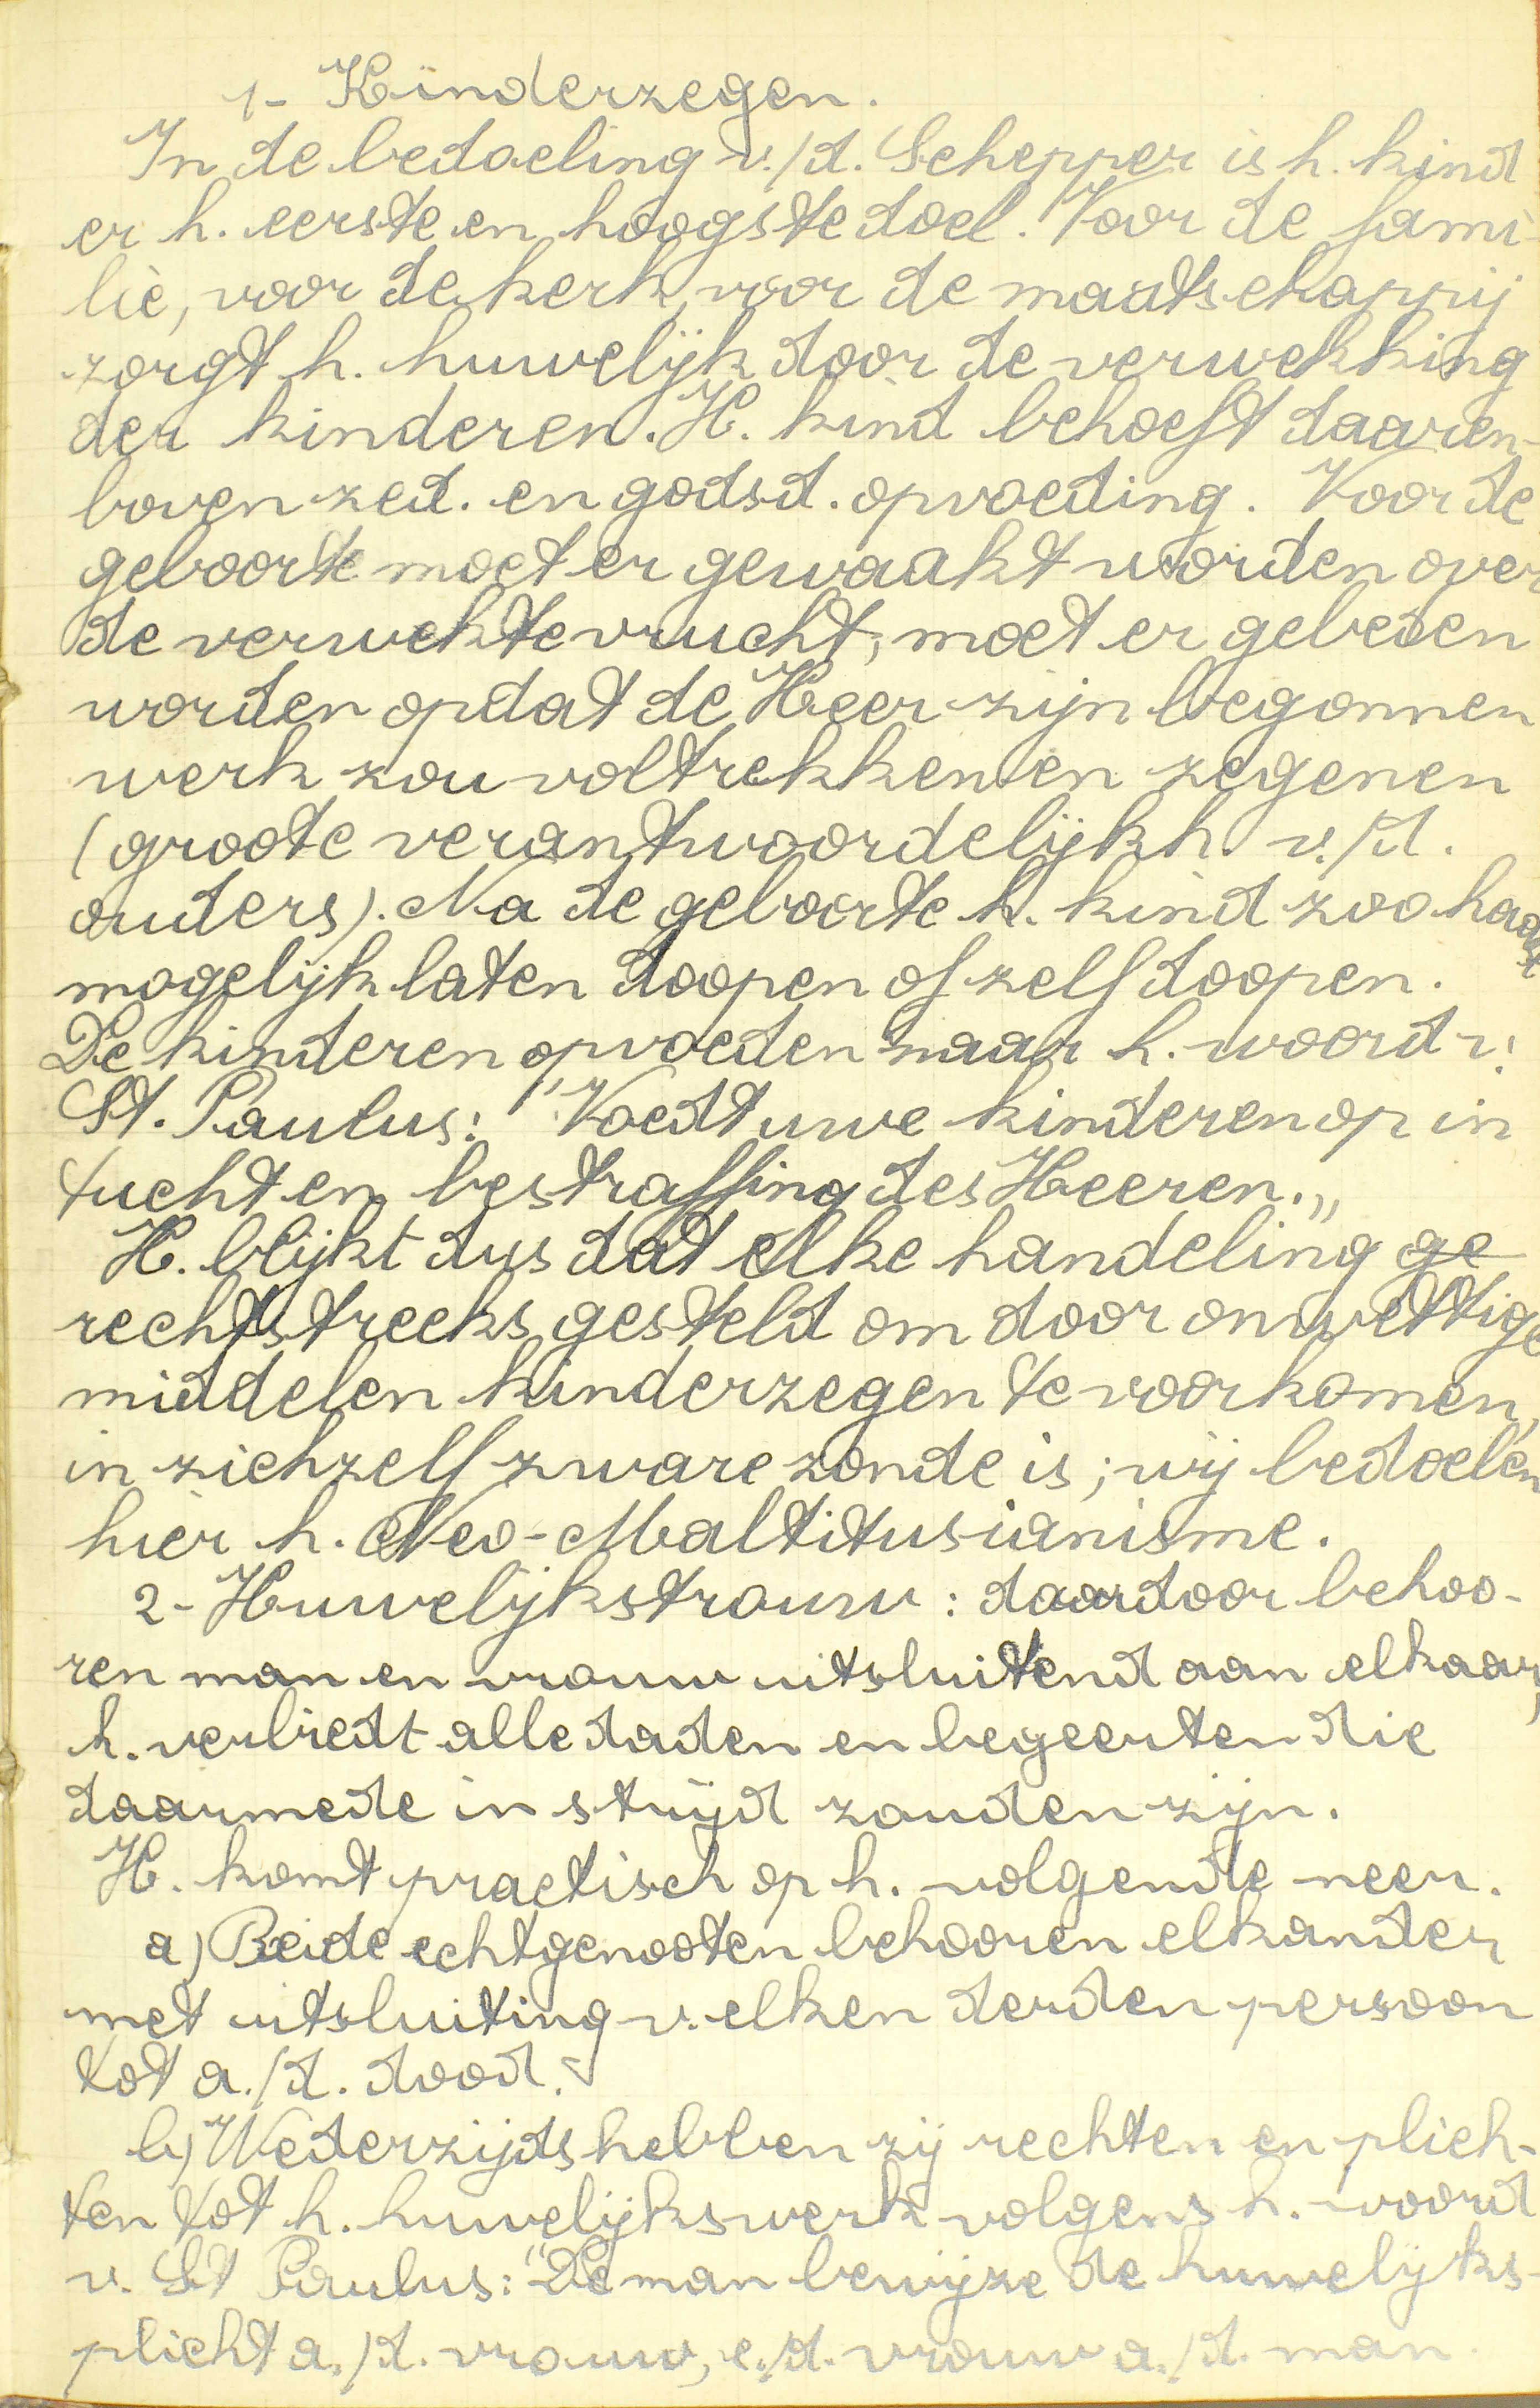 1- Kinderzegen.
In de bedoeling v./d. Schepper is h. kind
er h. eerste en hoogste doel. Voor de fami-
lie, voor de kerk, voor de maatschappij
zorgt h. huwelijk door de verwekking
der kinderen. H. kind behoeft daaren-
boven zed. en godsd. opvoeding. Voor de
geboorte moet er gewaakt worden over
de verwekte vrucht, moet er gebeden
worden opdat de Heer zijn begonnen
werk zou voltrekken en zegenen
(groote verantwoordelijkh. v./d.
ouders). Na de geboorte h. kind zoo haast
mogelijk laten doopen of zelf doopen.
De kinderen opvoeden naar h. woord v.
St. Paulus: "Voedt uwe kinderen op in
tucht en bestraffing des Heeren.„
H. blijkt dus dat elke handeling ge
rechtstreeks gesteld om door onwettige
middelen kinderzegen te voorkomen,
in zichzelf zware zonde is; wij bedoelen
hier h. Neo-Maltitusianisme.
2- Huwelijkstrouw: daardoor behoo-
ren man en vrouw uitsluitend aan elkaar;
h. verbiedt alle daden en begeerten die
daarmede in strijd zouden zijn.
H. komt practisch op h. volgende neer.
a) Beide echtgenooten behooren elkander
met uitsluiting v. elken derden persoon
tot a./d. dood.
b) Wederzijds hebben zij rechten en plich-
ten tot h. huwelijkswerk volgens h. woord
v. St Paulus: "De man bewijze de huwelijks-
plicht a./d. vrouw, e./d. vrouw a./d. man.